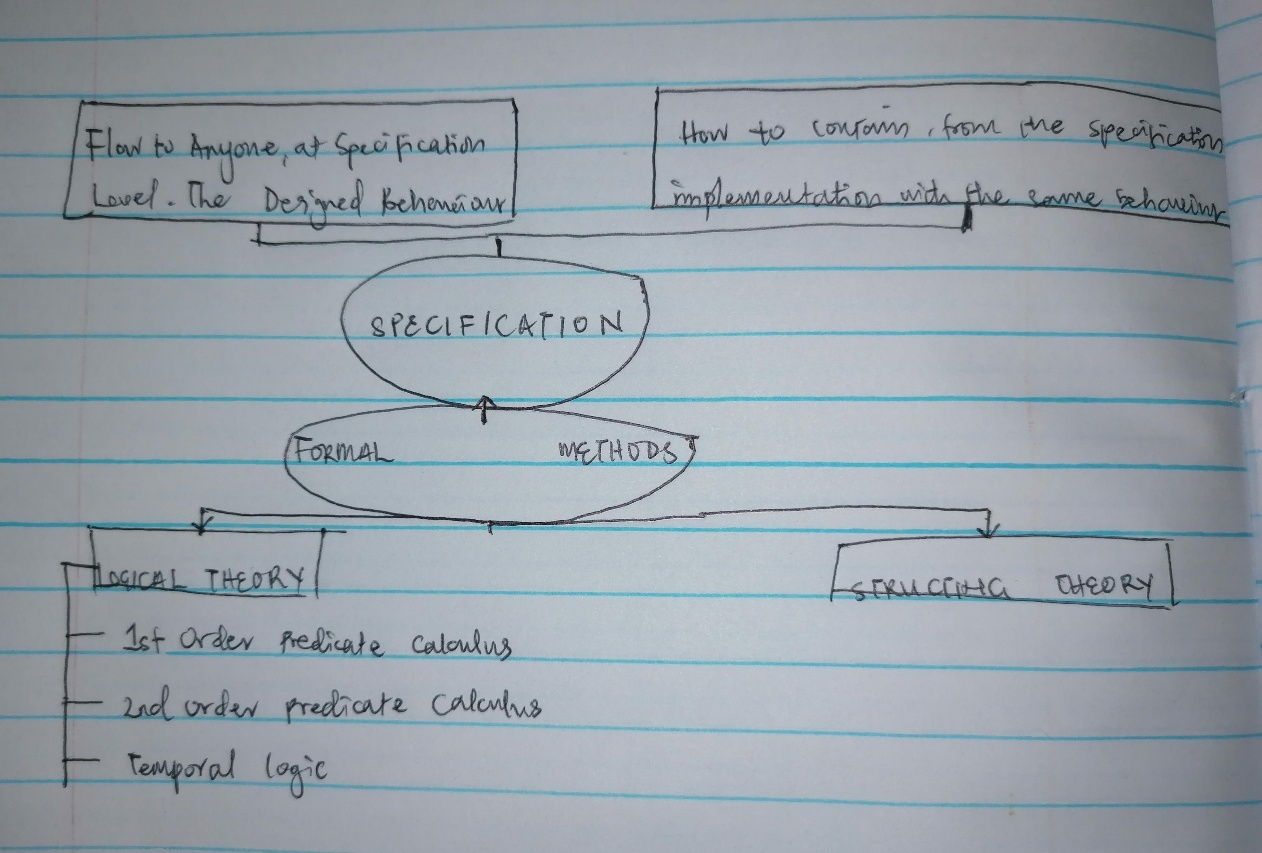 Flow to Anyone, at Specification
Level. The Designed Behaviour
How to contain, from the specification
implementation with the same behaviour
SPECIFICATION
FORMAL METHODS
LOGICAL THEORY
STRUCTING THEORY
1st Order Predicate Calculus
2nd order predicate Calculus
Temporal logic